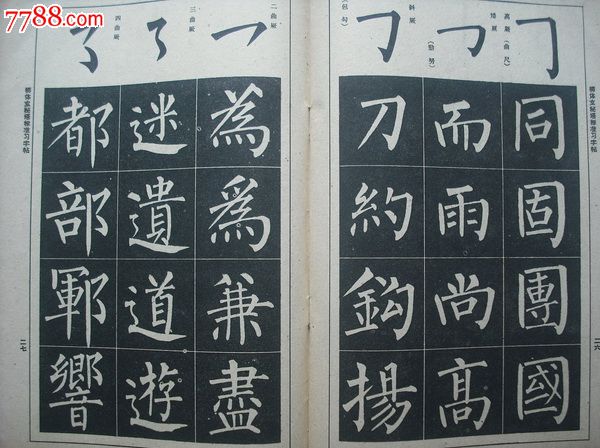 7788.com
高厥(曲尺)
同固團國
矮厥(勁努)
而雨尚高
斜厥(包勾)
刀約鈎揚
柳体玄秘塔标准习字帖
二六
二曲厥
為爲兼盡
三曲厥
迷遺道遊
四曲厥
都部鄆響
柳体玄秘塔标准习字帖
二七